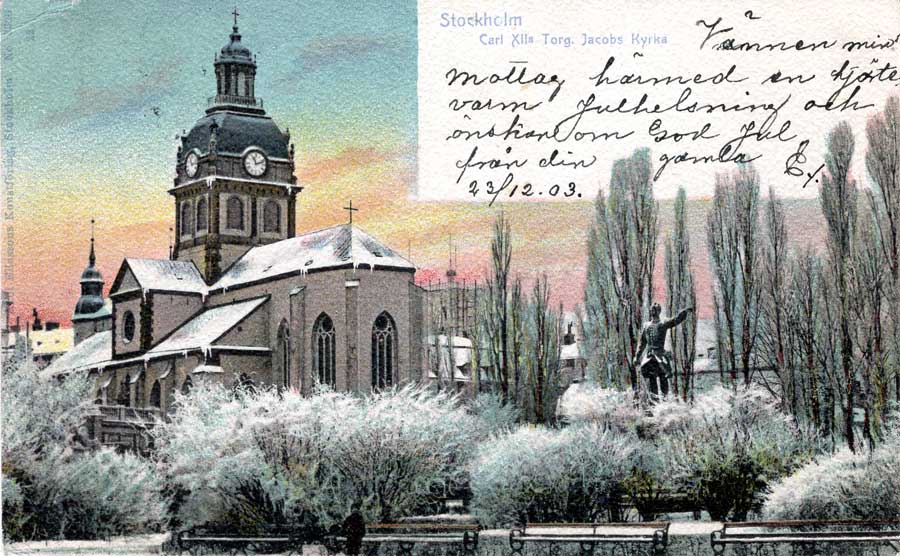 Stockholm
Carl XIIs Torg. Jacobs Kyrka
Vännen min!
mottag härmed en hjärte
varm Julhelsning och
önskan om God Jul
från din gamla
23/12.03.